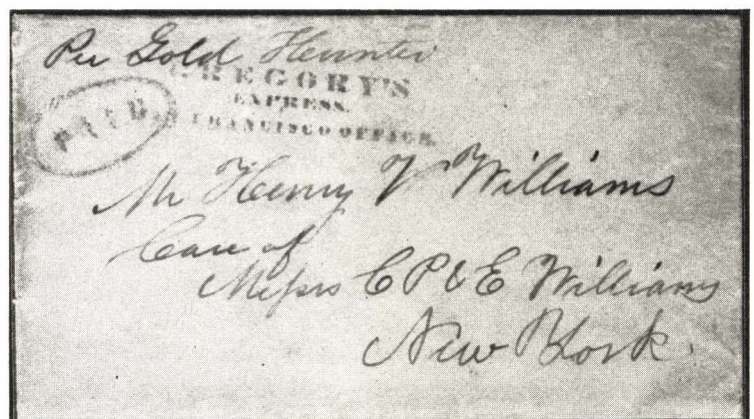 Per Gold Hunter
GREGORY'S
EXPRESS.
FRANCISCO OFFICE.
PAID
Mr Henry V Williams
Care of
Messrs C P & E Williams
New York.